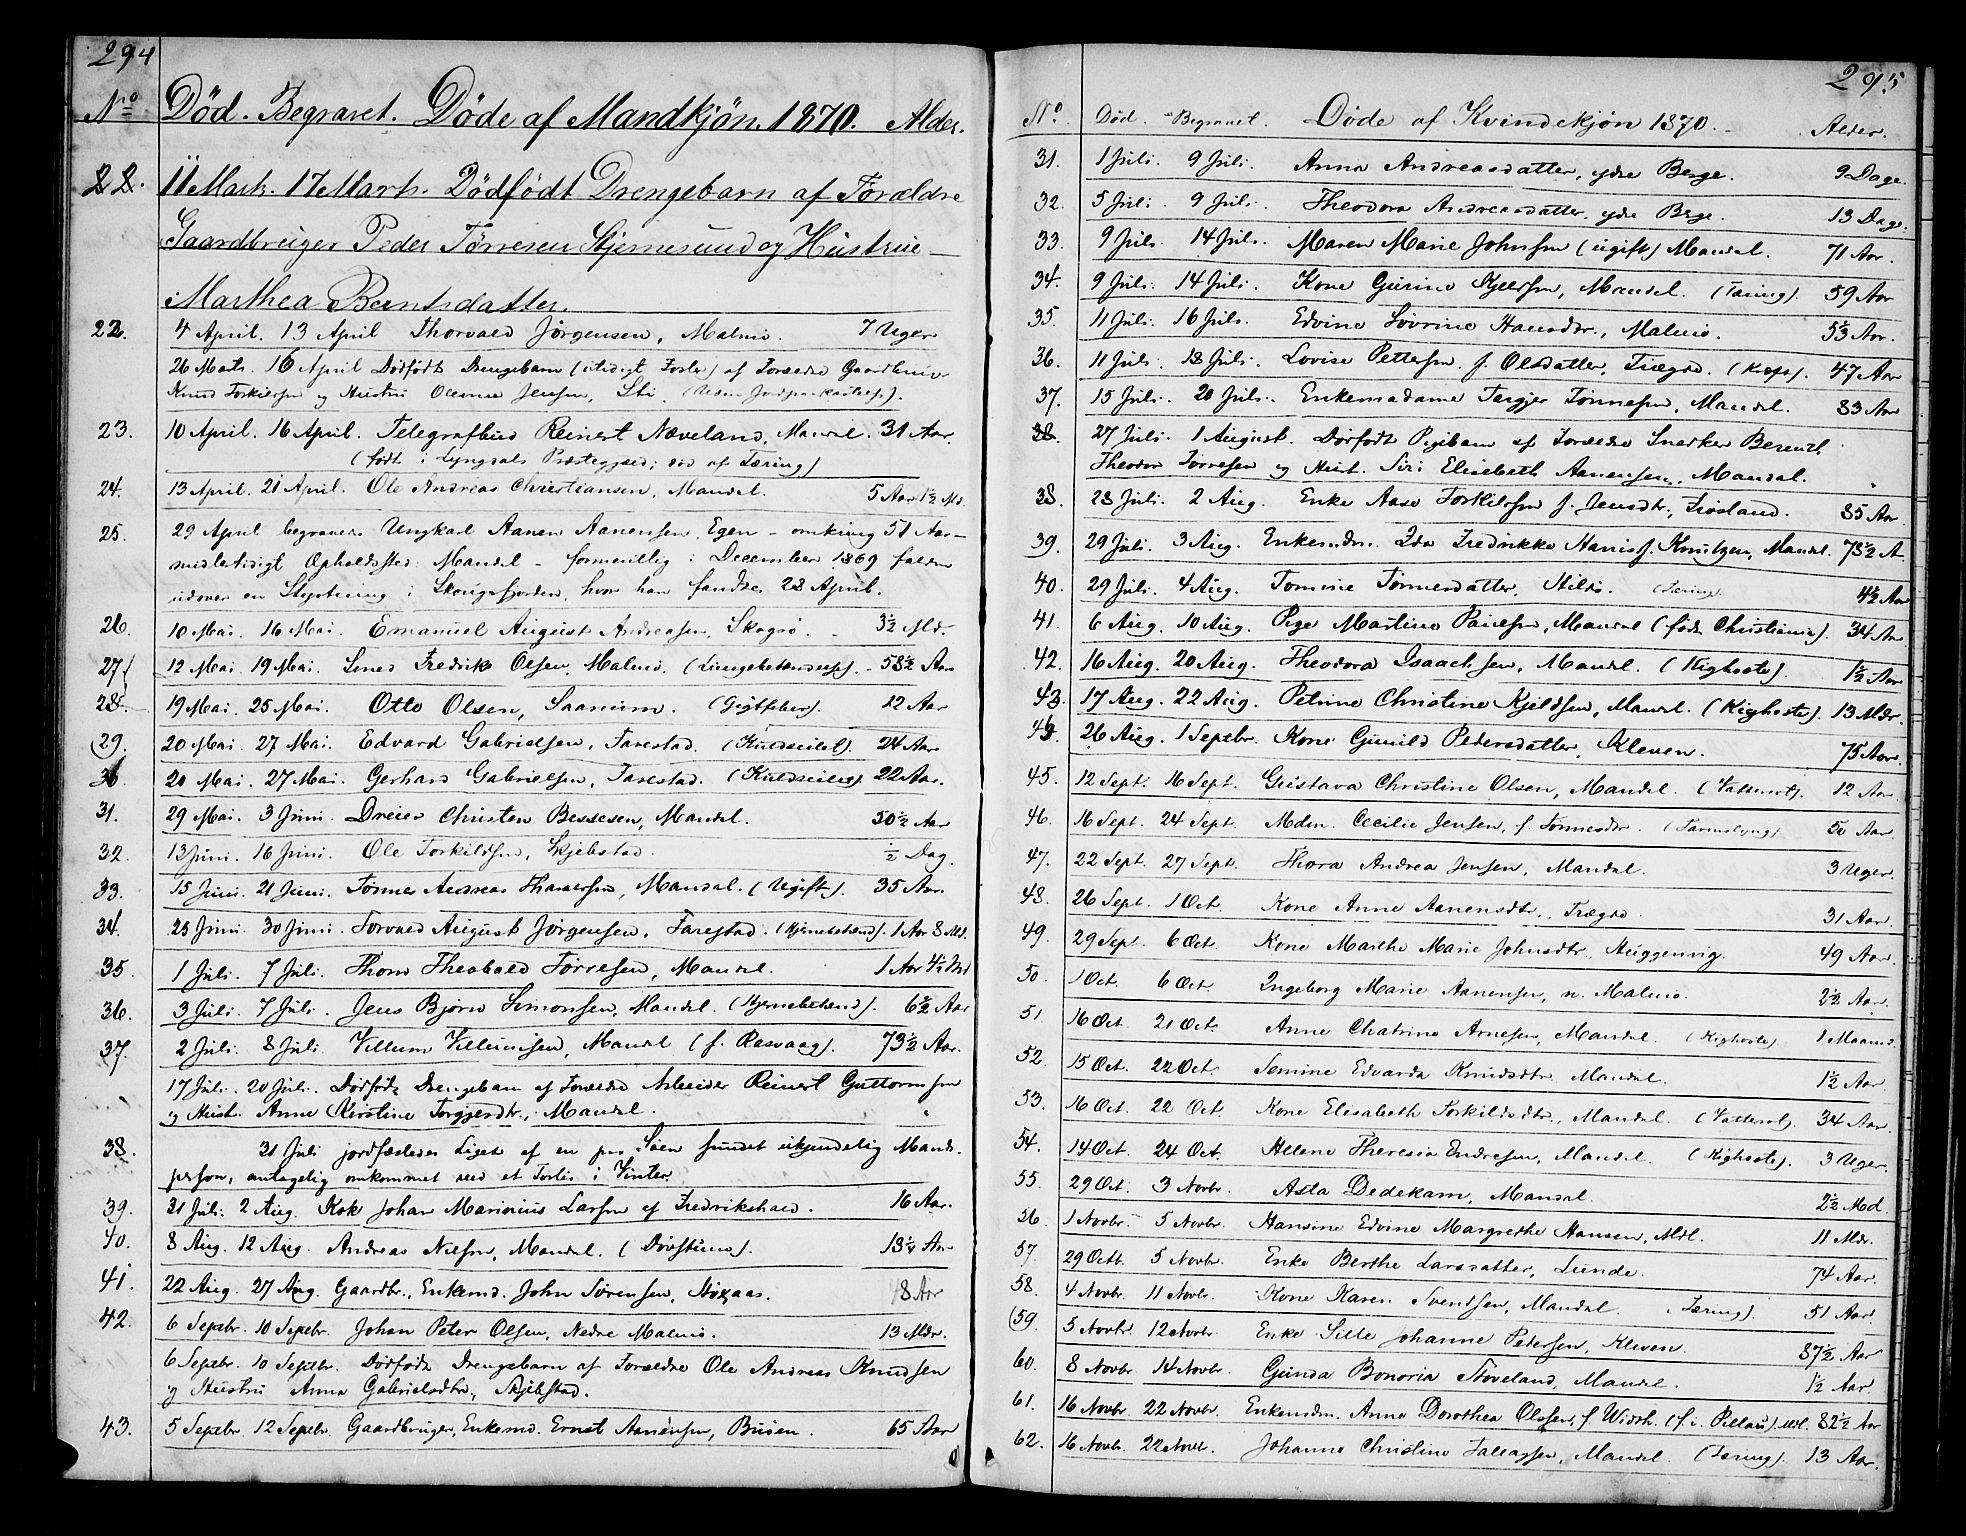 294
No Død. Begravet. Døde af Mandkjøn. 1870. Alder.
22. 11 Marts. 17 Marts. Dödfödt Drengebarn af Forældre
Gaardbruger Peder Tørresen Stjernesund og Hustrue
Marthea Berntsdatter.
22. 4 April. 13 April Thorvald Jörgensen, Malmö. 7 Uger
26 Marts. 16 April Dødfødt Drengebarn (utidigt Foster) af Forældre Gaardbruger
Knud Torkilsen og Hustru Olesine Jensen, Sti.
23. 10 April. 16 April. Telegrafbud Reinert Næveland, Mandal. 31 Aar.
(født i Lyngdals Præstegjeld; død af Tæring)
24. 13 April. 21 April. Ole Andreas Christiansen, Mandal. 5 Aar 1½ Md.
25. 29 April begraven Ungkarl Aanen Aanensen Egen - omkring 51 Aar -
midlertidigt Opholdssted: Mandal - formentlig i December 1869 falden
udover en Styrtning i Skougsfjorden, hvor han fandtes 28 April.
26. 10 Mai. 16 Mai. Emanuel August Andreasen, Skogsö. 3½ Md.
27 12 Mai. 19 Mai. Fredrik Olsen, Malmö. (Lungebetændelse). 58½ Aar
28. 19 Mai. 25 Mai. Otto Olsen, Saanum. (Gigtfeber). 12 Aar
29. 20 Mai. 27 Mai. Edvard Gabrielsen, Tarestad. (Kuldseilet). 24 Aar
30 20 Mai. 27 Mai. Gerhard Gabrielsen, Tarestad. (Kuldseilet) 22 Aar.
31. 29 Mai. 3 Juni. Dreier Christen Bessesen, Mandal. 50½ Aar
32. 13 Juni. 16 Juni. Ole Torkildsen, Skjebstad. ½ Dag.
33. 15 Juni. 21 Juni. Tønnes Andreas, Mandal. (Ugift). 35 Aar.
34. 25 Juni. 30 Juni. Torvald August Jörgensen, Tarestad. (Hjernebetænd). 1 Aar 8 Md.
35. 1 Juli. 7 Juli. Thom Theobald Tørresen, Mandal. 1 Aar 4½ Md
36. 3 Juli. 7 Juli. Jens Bjørn Simonsen, Mandal. (Hjernebetænd). 6½ Aar
37. 2 Juli. 8 Juli. Villum Villumsen, Mandal (f. Rasvaag). 73½ Aar.
17 Juli. 20 Juli. Dødfødt Drengebarn af Forældre Arbeider Reinert Guttormsen
og Hust. Anne Kirstine Torgjersdtr., Mandal. "
38. 21 Juli jordfæstedes Liget af en paa Søen fundet ukjendelig Mands-
person, antagelig omkommet ved et Forlis i Vinter.
39. 31 Juli. 2 Aug. Kok Johan Marinius Larsen af Fredrikshald. 16 Aar.
40. 8 Aug. 12 Aug. Andreas Nilsen, Mandal. (Døvstum). 18¼ Aar
41. 22 Aug. 27 Aug. Gaardbr., Enkemd. John Sørensen, Støxaas. 8 Aar
42. 6 Septbr. 10 Septbr. Johan Peter Olsen, Nedre Malmö. 13 Mdr.
6 Septbr. 10 Septbr. Dødfødt Drengebarn af Forældre Ole Andreas Knudsen
og Hustru Anna Gabrielsdtr., Skjebstad.
43. 5 Septbr. 12 Septbr. Gaardbruger, Enkemd. Ernst Aanensen, Buöen. 65 Aar
295
No. Død. Begravet. Døde af Kvindekjøn 1870. Alder.
31. 1 Juli. 9 Juli. Anna Andreasdatter, ydre Berge. 9 Dage.
32. 5 Juli. 9 Juli. Theodora Andreasdatter, ydre Berge. 13 Dage.
33. 9 Juli. 14 Juli. Maren Marie Johnsen (ugift) Mandal. 71 Aar.
34. 9 Juli. 14 Juli. Kone Gurine Kjeldsen, Mandal. (Tæring). 59 Aar
35. 11 Juli. 16 Juli. Edvine Lovrine Hansdtr., Malmö. 5½ Aar.
36. 11 Juli. 18 Juli. Lovise Pettersen f. Olsdatter, Trægde. (Kræft). 47 Aar
37. 15 Juli. 20 Juli. Enkemadame Targjer Tønnesen, Mandal. 83 Aar
38. 27 Juli. 1 August. Dødfødt Pigebarn af Forældre Snedker Berendt
Theodor Tørresen og Hust. Siri Elisabeth Aanensen, Mandal. "
38. 28 Juli. 2 Aug. Enke Aase Torkildsen f. Jensdtr., Frøsland. 85 Aar.
39. 29 Juli. 3 Aug. Enkemdm. Ida Fredrikke Hanis f. Knutzen, Mandal. 73½ A
40. 29 Juli. 4 Aug. Tomine Tønnesdatter, Hildö. (Tæring). 4½ Aar
41. 6 Aug. 10 Aug. Pige Martine Paulsen, Mandal (født Christiania). 34 Aar
42. 16 Aug. 20 Aug. Theodora Isaachsen, Mandal. (Kighoste). 1½ Aar
43. 17 Aug. 22 Aug. Petrine Christine Kjeldsen, Mandal. (Kighoste). 13 Mdr.
44. 26 Aug. 1 Septbr. Kone Gunild Pedersdatter, Kleven. 75 Aar.
45. 12 Sept. 16 Sept. Gustava Christine Olsen, Mandal. (Vattersot). 12 Aar.
46. 16 Sept. 24 Sept. Mdm. Cecilie Jensen, f. Tønnesdtr. (Tarmslyng). 50 Aar.
47. 22 Sept. 27 Sept. Thora Andrea Jensen, Mandal. 3 Uger.
48. 26 Sept. 1 Oct. Kone Anne Aanensdtr., Trægde. 31 Aar.
49. 29 Sept. 6 Oct. Kone Marthe Marie Johnsdtr., Haaggenvig. 49 Aar.
50. 1 Oct. 6 Oct. Ingeborg Marie Aanensen, n. Malmö. 2½ Aar.
51 16 Oct. 21 Oct. Anne Chatrine Arnesen, Mandal. (Kighoste). 1 Maaned.
52. 15 Oct. 22 Oct. Semine Edvarda Knudsdtr., Mandal. 1½ Aar.
53. 16 Oct. 22 Oct. Kone Elisabeth Torkildsdtr., Mandal. (Vattersot). 34 Aar.
54. 14 Oct. 24 Oct. Helene Theresia Endresen, Mandal. (Kighoste). 3 Uger.
55. 29 Oct. 3 Novbr. Asta Dedekam, Mandal. 2½ Md.
56. 1 Novbr. 5 Novbr. Hansine Edvine Margrethe Hansen, Mdl. 11 Mdr.
57. 29 Octb. 5 Novbr. Enke Berthe Larsdatter, Lunde. 74 Aar.
58. 4 Novbr. 11 Novbr. Kone Karen Svendsen, Mandal. (Tæring). 51 Aar.
59. 5 Novbr. 12 Novbr. Enke Sille Johanne Petersen, Kleven. 87½ Aar
60. 8 Novbr. 14 Novbr. Gunda Bonoria Støveland, Mandal. 1½ Aar.
61. 16 Novbr. 22 Novbr. Enkemdm. Anne Dorothea Olsen, f. Width. (f. i Pillau). Mdl. 82½ Aar
62. 16 Novbr. 22 Novbr. Johanne Christine Tallagsen, Mandal. (Tæring). 13 Aar.